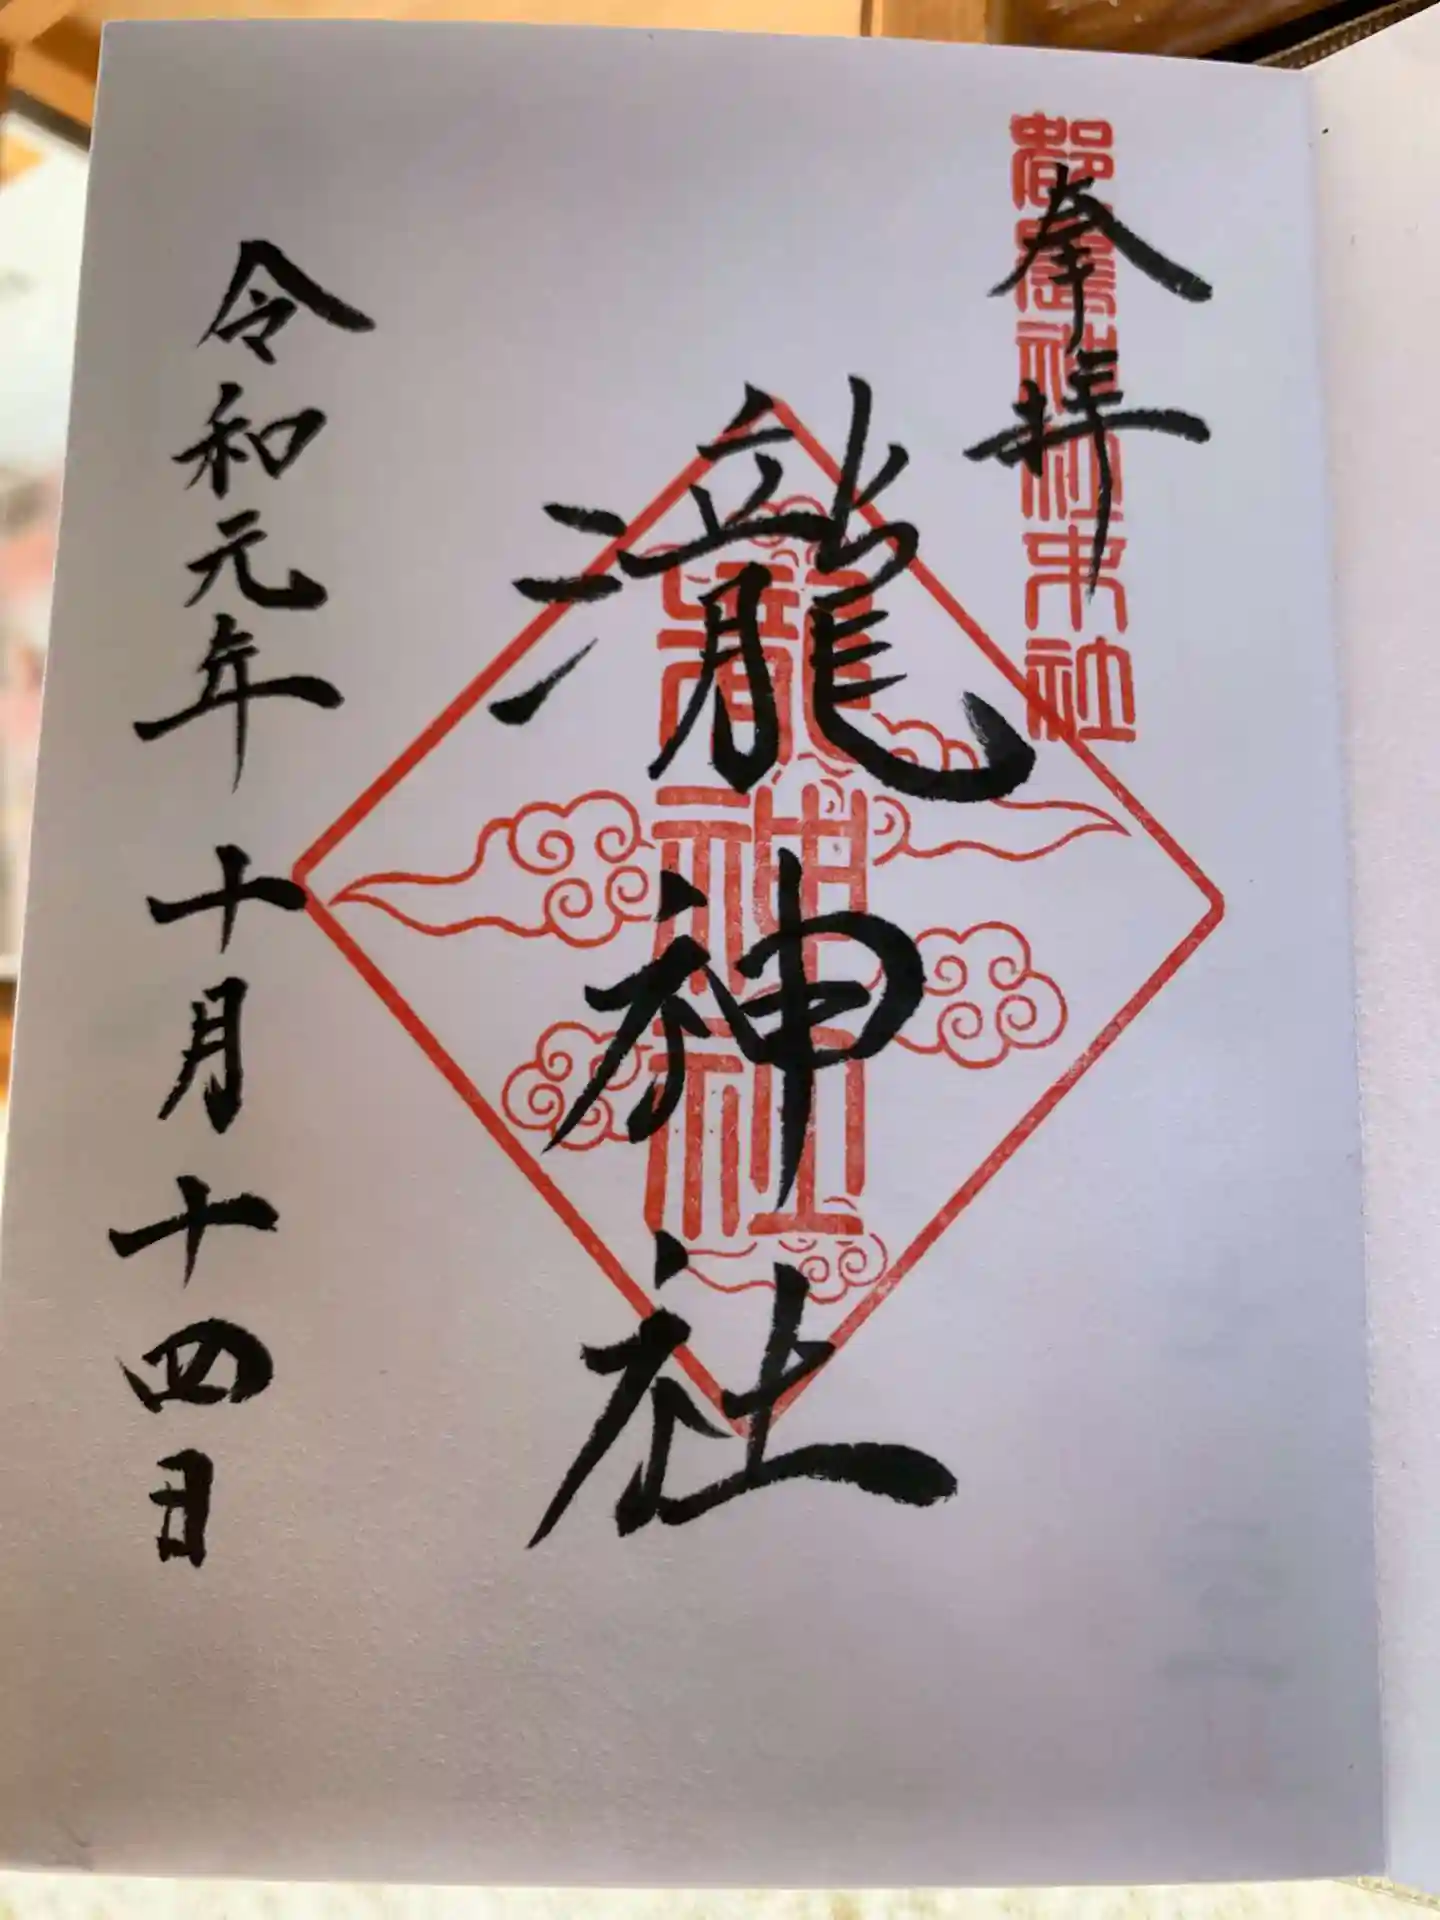 奉拝
瀧神社
瀧神社
令和元年 十月十四日